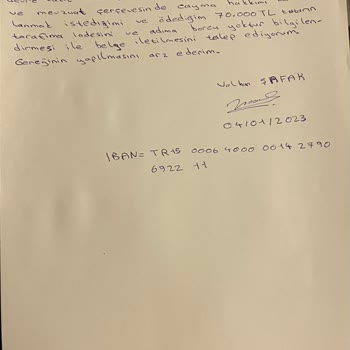 ve mevzuat çerçevesinde cayma hakkımı
lanmak istediğimi ve ödediğim 70.000 TL tutarın
tarafıma iadesini ve adıma borcu yoktur bilgilen-
dirmesi ile belge iletilmesini talep ediyorum.
Gereğinin yapılmasını arz ederim.
Volkan ŞAFAK
04/01/2023
IBAN= TR15 0006 4000 0014 2790
6922 11